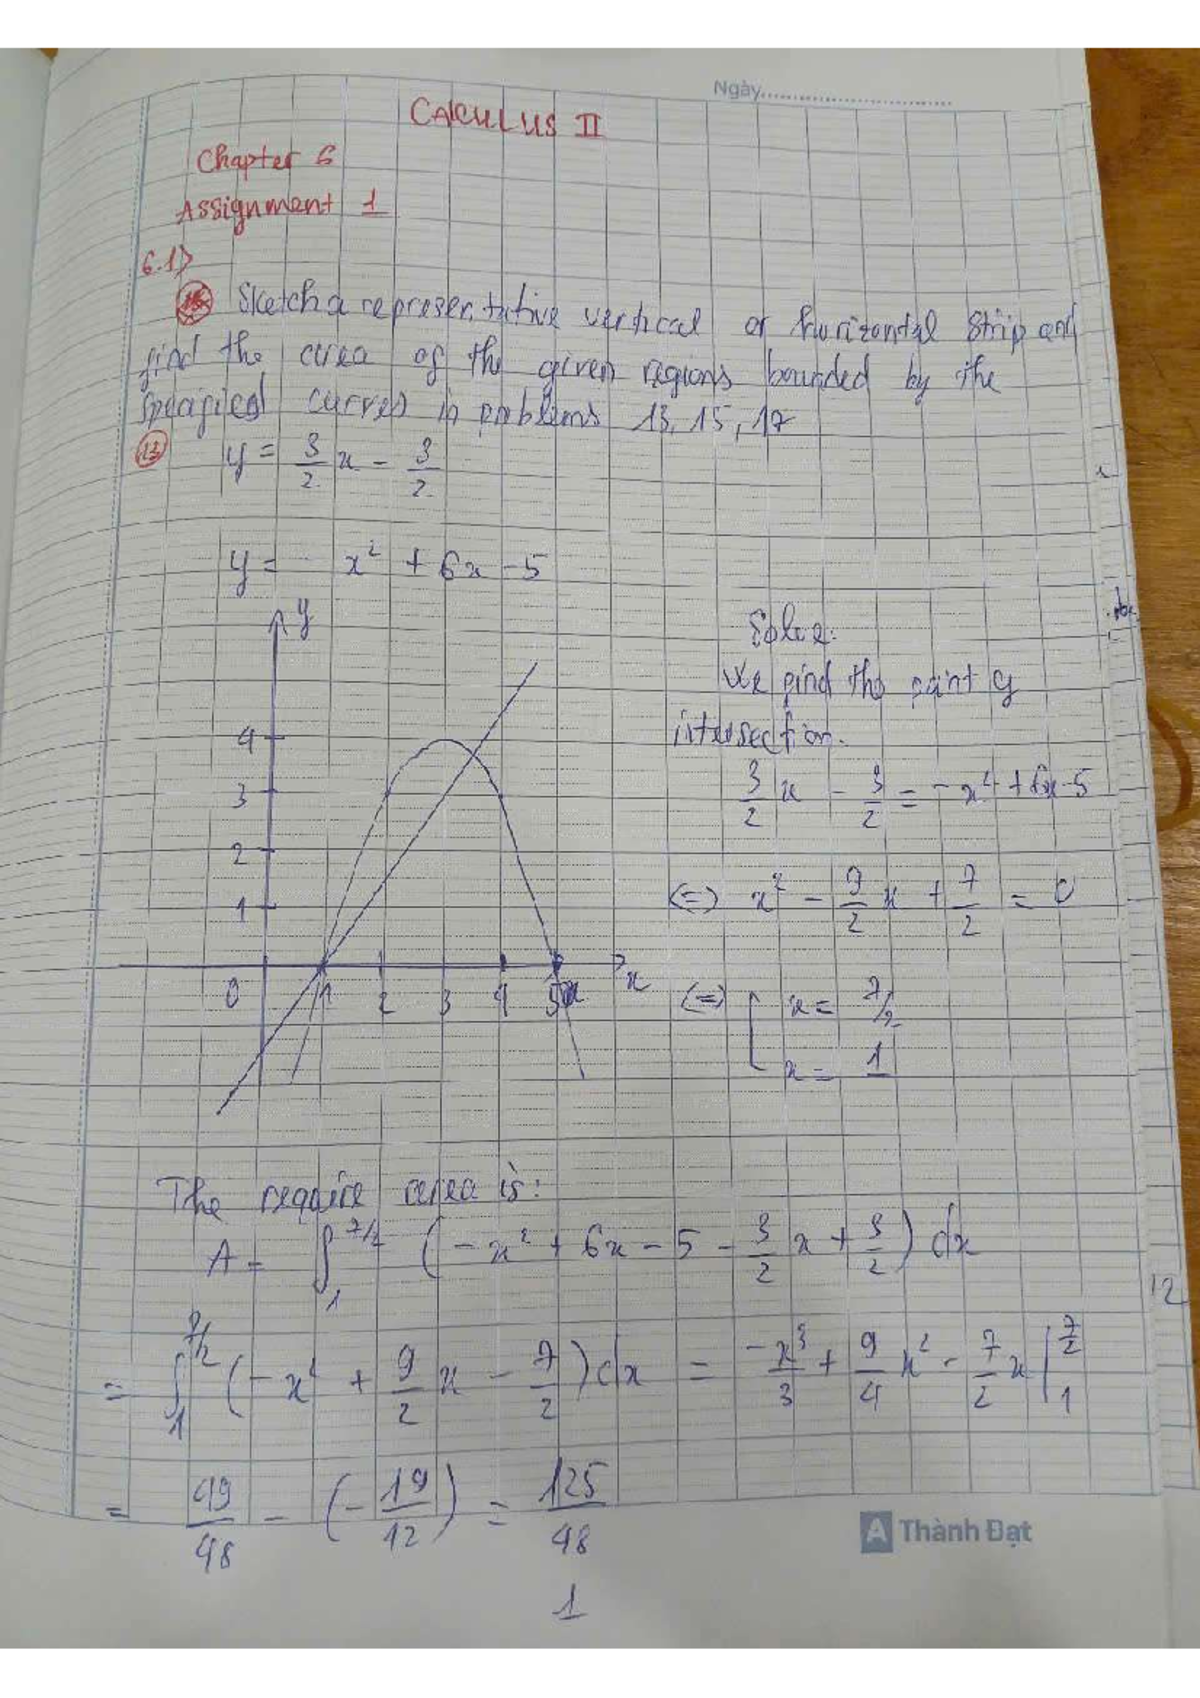 Ngày..............................
CALCULUS II
Chapter 6
Assignment 1
6.1)
Sketch a representative vertical or horizontal strip and
find the area of the given regions bounded by the
specified curves in problems 13, 15, 17
13 y = 3/2 x - 3/2
y = - x² + 6x - 5
y
4
3
2
1
0 1 2 3 4 5 x
Solve:
We find the point of
intersection.
3/2 x - 3/2 = -x² + 6x - 5
(=) x² - 9/2 x + 7/2 = 0
(=) [ x = 7/2
x = 1
The require area is:
A = ∫₁^{7/2} (-x² + 6x - 5 - 3/2 x + 3/2) dx
= ∫₁^{7/2} (-x² + 9/2 x - 7/2) dx = -x³/3 + 9/4 x² - 7/2 x |₁^{7/2}
= 49/48 - (-19/12) = 125/48
Thành Đạt
1
12